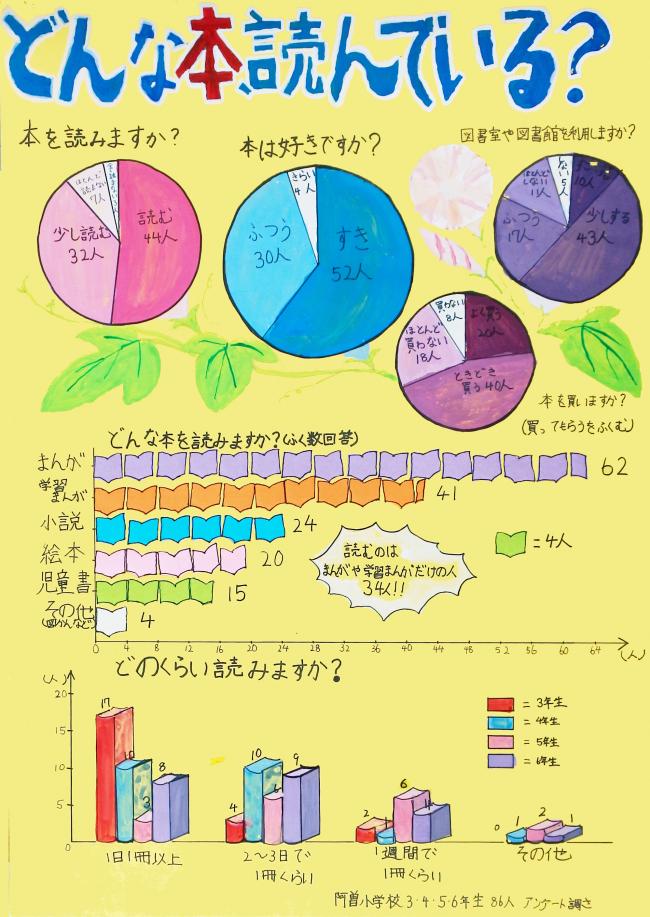 どんな本、読んでいる?
本を読みますか?
本は好きですか?
図書室や図書館を利用しますか?
読む
44人
少し読む
32人
ほとんど
読まない
7人
すき
52人
ふつう
30人
きらい
4人
10人
少しする
43人
ふつう
17人
ほとんど
しない
11人
ない
5人
よく買う
20人
ときどき
買う40人
ほとんど
買わない
18人
買わない
8人
本を買いますか?
(買ってもらうをふくむ)
どんな本を読みますか?(ふく数回答)
まんが
62
学習
まんが
41
小説
24
絵本
20
児童書
15
その他
(図かんなど)
4
読むのは
まんがや学習まんがだけの人
34人!!
=4人
0 4 8 12 16 20 24 28 32 36 40 44 48 52 56 60 64 (人)
どのくらい読みますか?
(人)
20
15
10
5
0
17 10 3 8
4 10 6 9
2 1 6 4
0 1 2 1
= 3年生
= 4年生
= 5年生
= 6年生
1日1冊以上
2〜3日で
1冊くらい
1週間で
1冊くらい
その他
阿曽小学校 3・4・5・6年生 86人 アンケート調さ